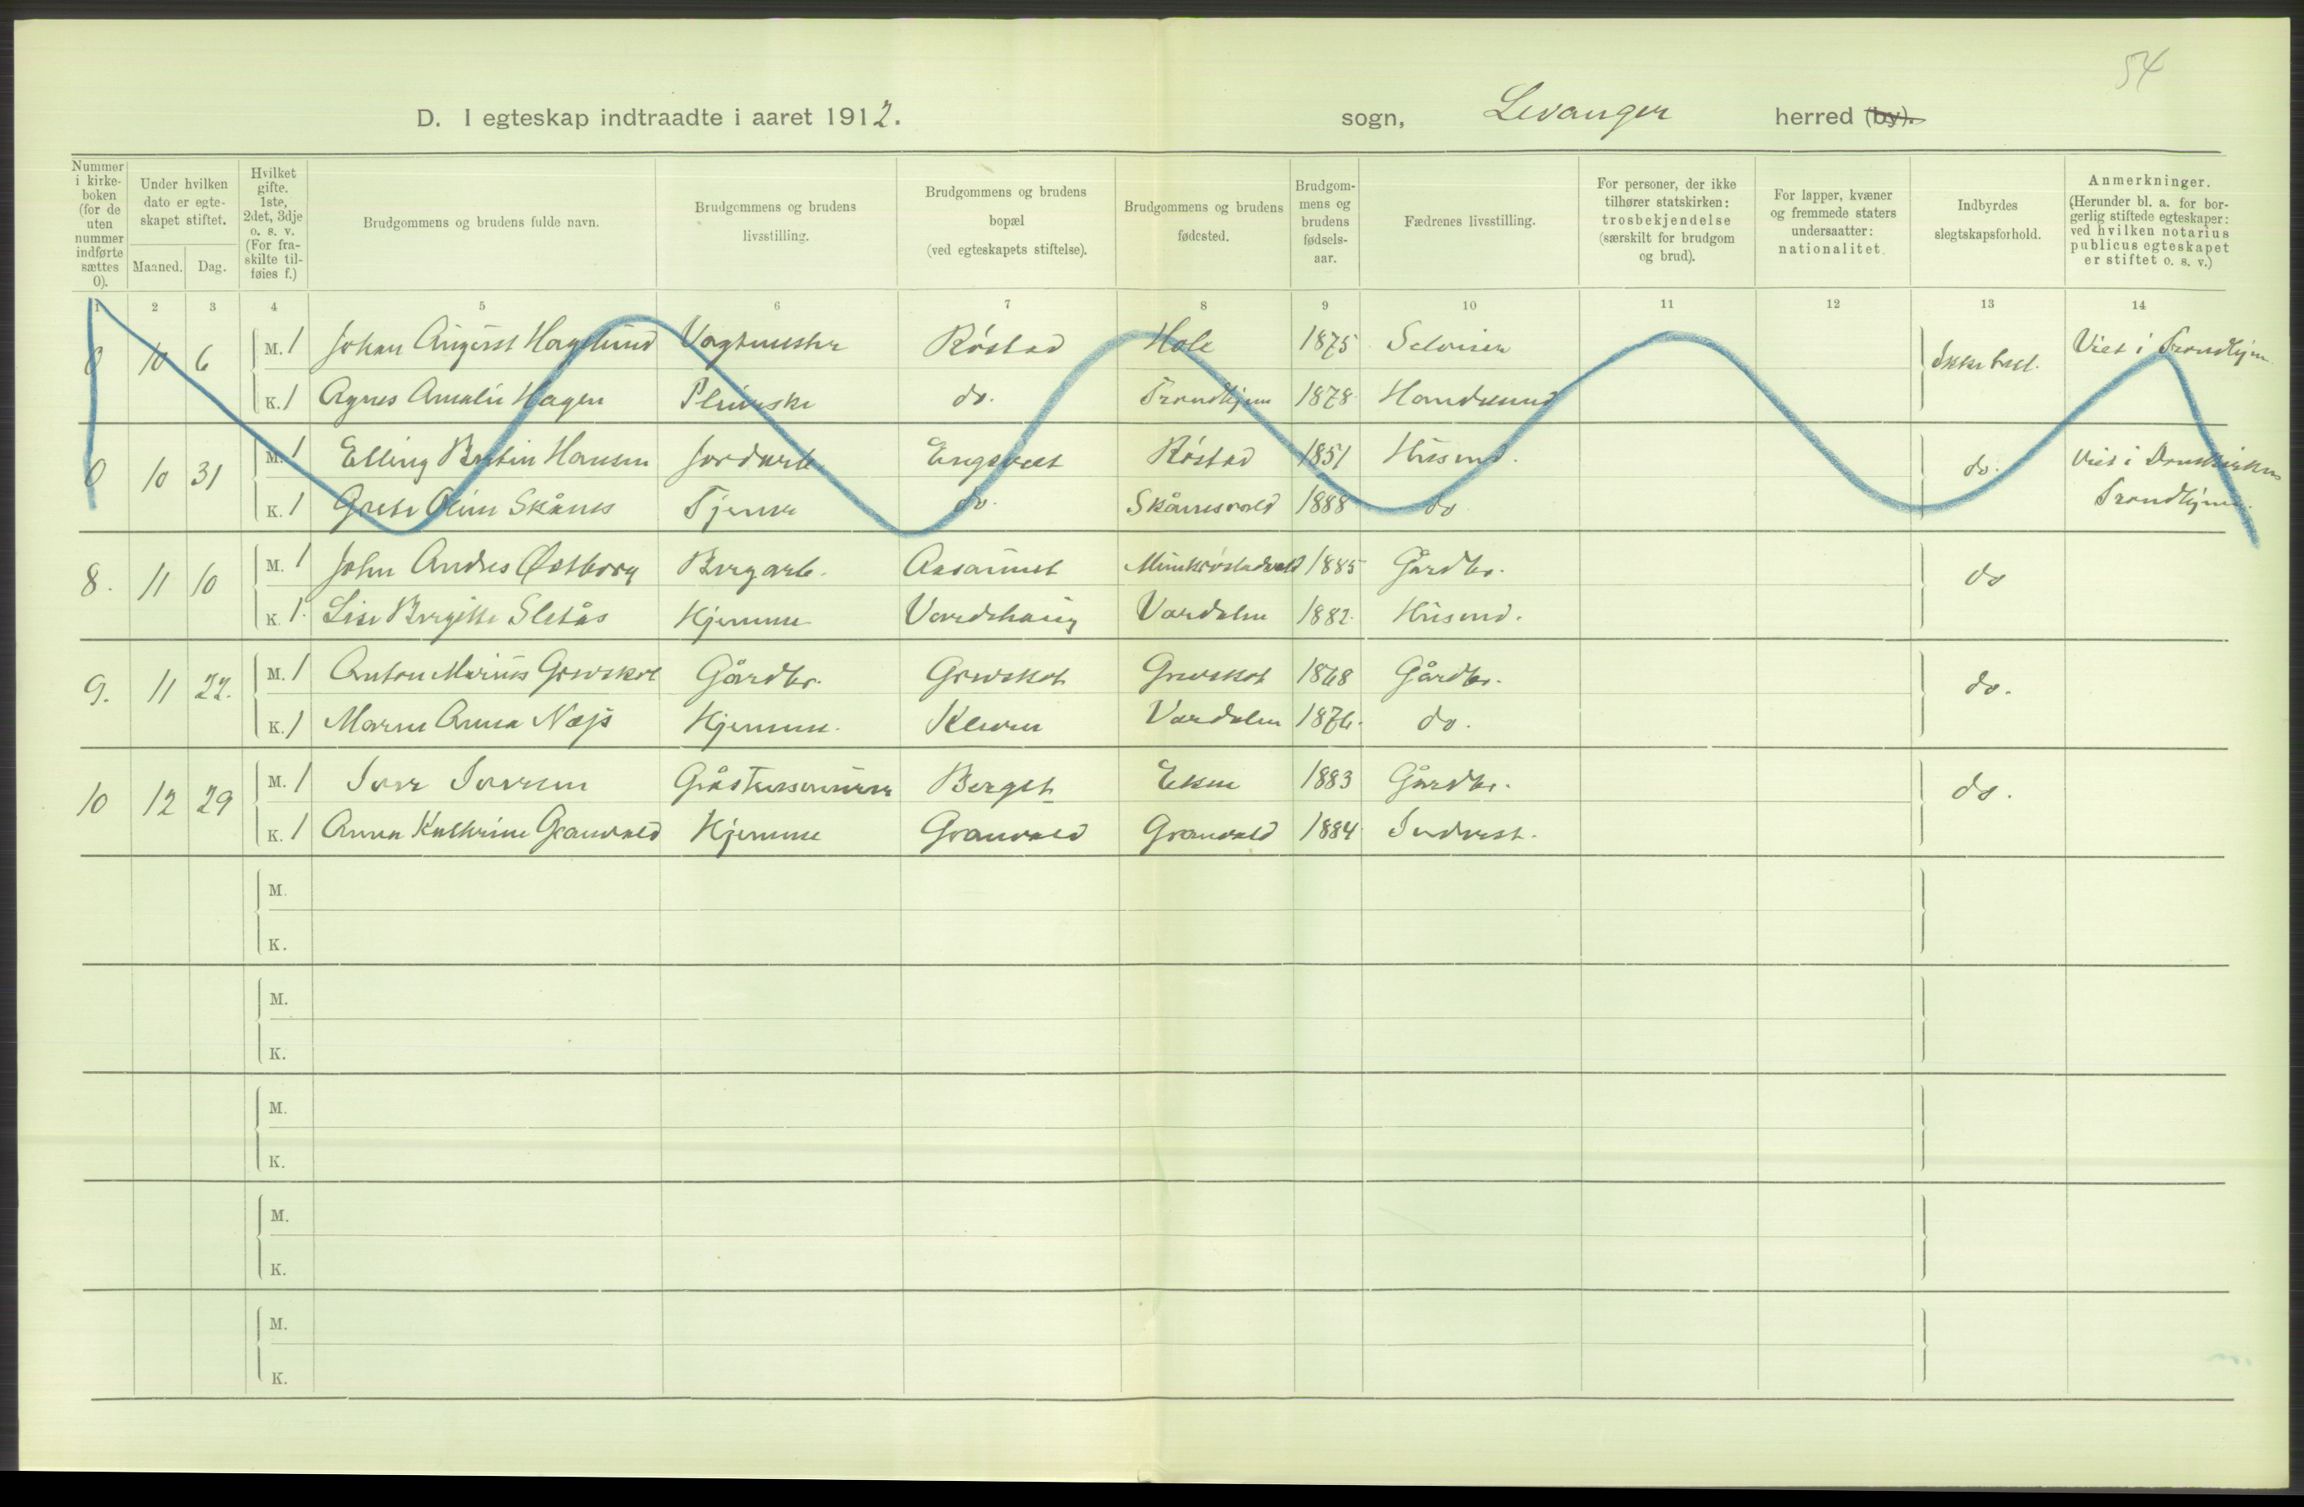 54
D. I egteskap indtraadte i aaret 1912. sogn, Levanger herred (by).
Nummer i kirkeboken (for de uten nummer indførte sættes 0).
Under hvilken dato er egteskapet stiftet.
Maaned. Dag.
Hvilket gifte. 1ste, 2det, 3dje o. s. v. (For fraskilte tilføies f.)
Brudgommens og brudens fulde navn.
Brudgommens og brudens livsstilling.
Brudgommens og brudens bopæl (ved egteskapets stiftelse).
Brudgommens og brudens fødested.
Brudgommens og brudens fødselsaar.
Fædrenes livsstilling.
For personer, der ikke tilhører statskirken: trosbekjendelse (særskilt for brudgom og brud).
For lapper, kvæner og fremmede staters undersaatter: nationalitet.
Indbyrdes slegtskapsforhold.
Anmerkninger. (Herunder bl. a. for borgerlig stiftede egteskaper: ved hvilken notarius publicus egteskapet er stiftet o. s. v.)
1 2 3 4 5 6 7 8 9 10 11 12 13 14
0 10 6 M. 1 Johan August Hagelund Vagtmester Røstad Hole 1875 Ikke besl. Viet i Trondhjem
K. 1 Agnes Amalie Hagen Pleierske do. Trondhjem 1878 Handelsmand
0 10 31 M. 1 Elling Hansen Jordarb Røstad 1851 Husmd. do. Viet i Domkirken
K. 1 Grete Oline Skånes Tjener do. Skånesvald 1888 do Trondhjem.
8. 11 10 M. 1 John Andres Østborg Bergarb. 1885 Gårdbr. do
K. 1. Lise Bergitte Sletås Hjemme Vordehaug Værdalen 1882. Husmd.
9. 11 22. M. 1 Anton Marius Grevskot Gårdbr. Grevskot Grevskot 1868 Gårdbr. do.
K. 1 Maren Anna Næss Hjemme. Kleven Værdalen 1876. do.
10 12 29 M. 1 Iver Iversen Berget Ekne 1883 Gårdbr. do.
K. 1 Anna Kathrine Granvald Hjemme Granvald Granvald 1884 Inderst.
M.
K.
M.
K.
M.
K.
M.
K.
M.
K.